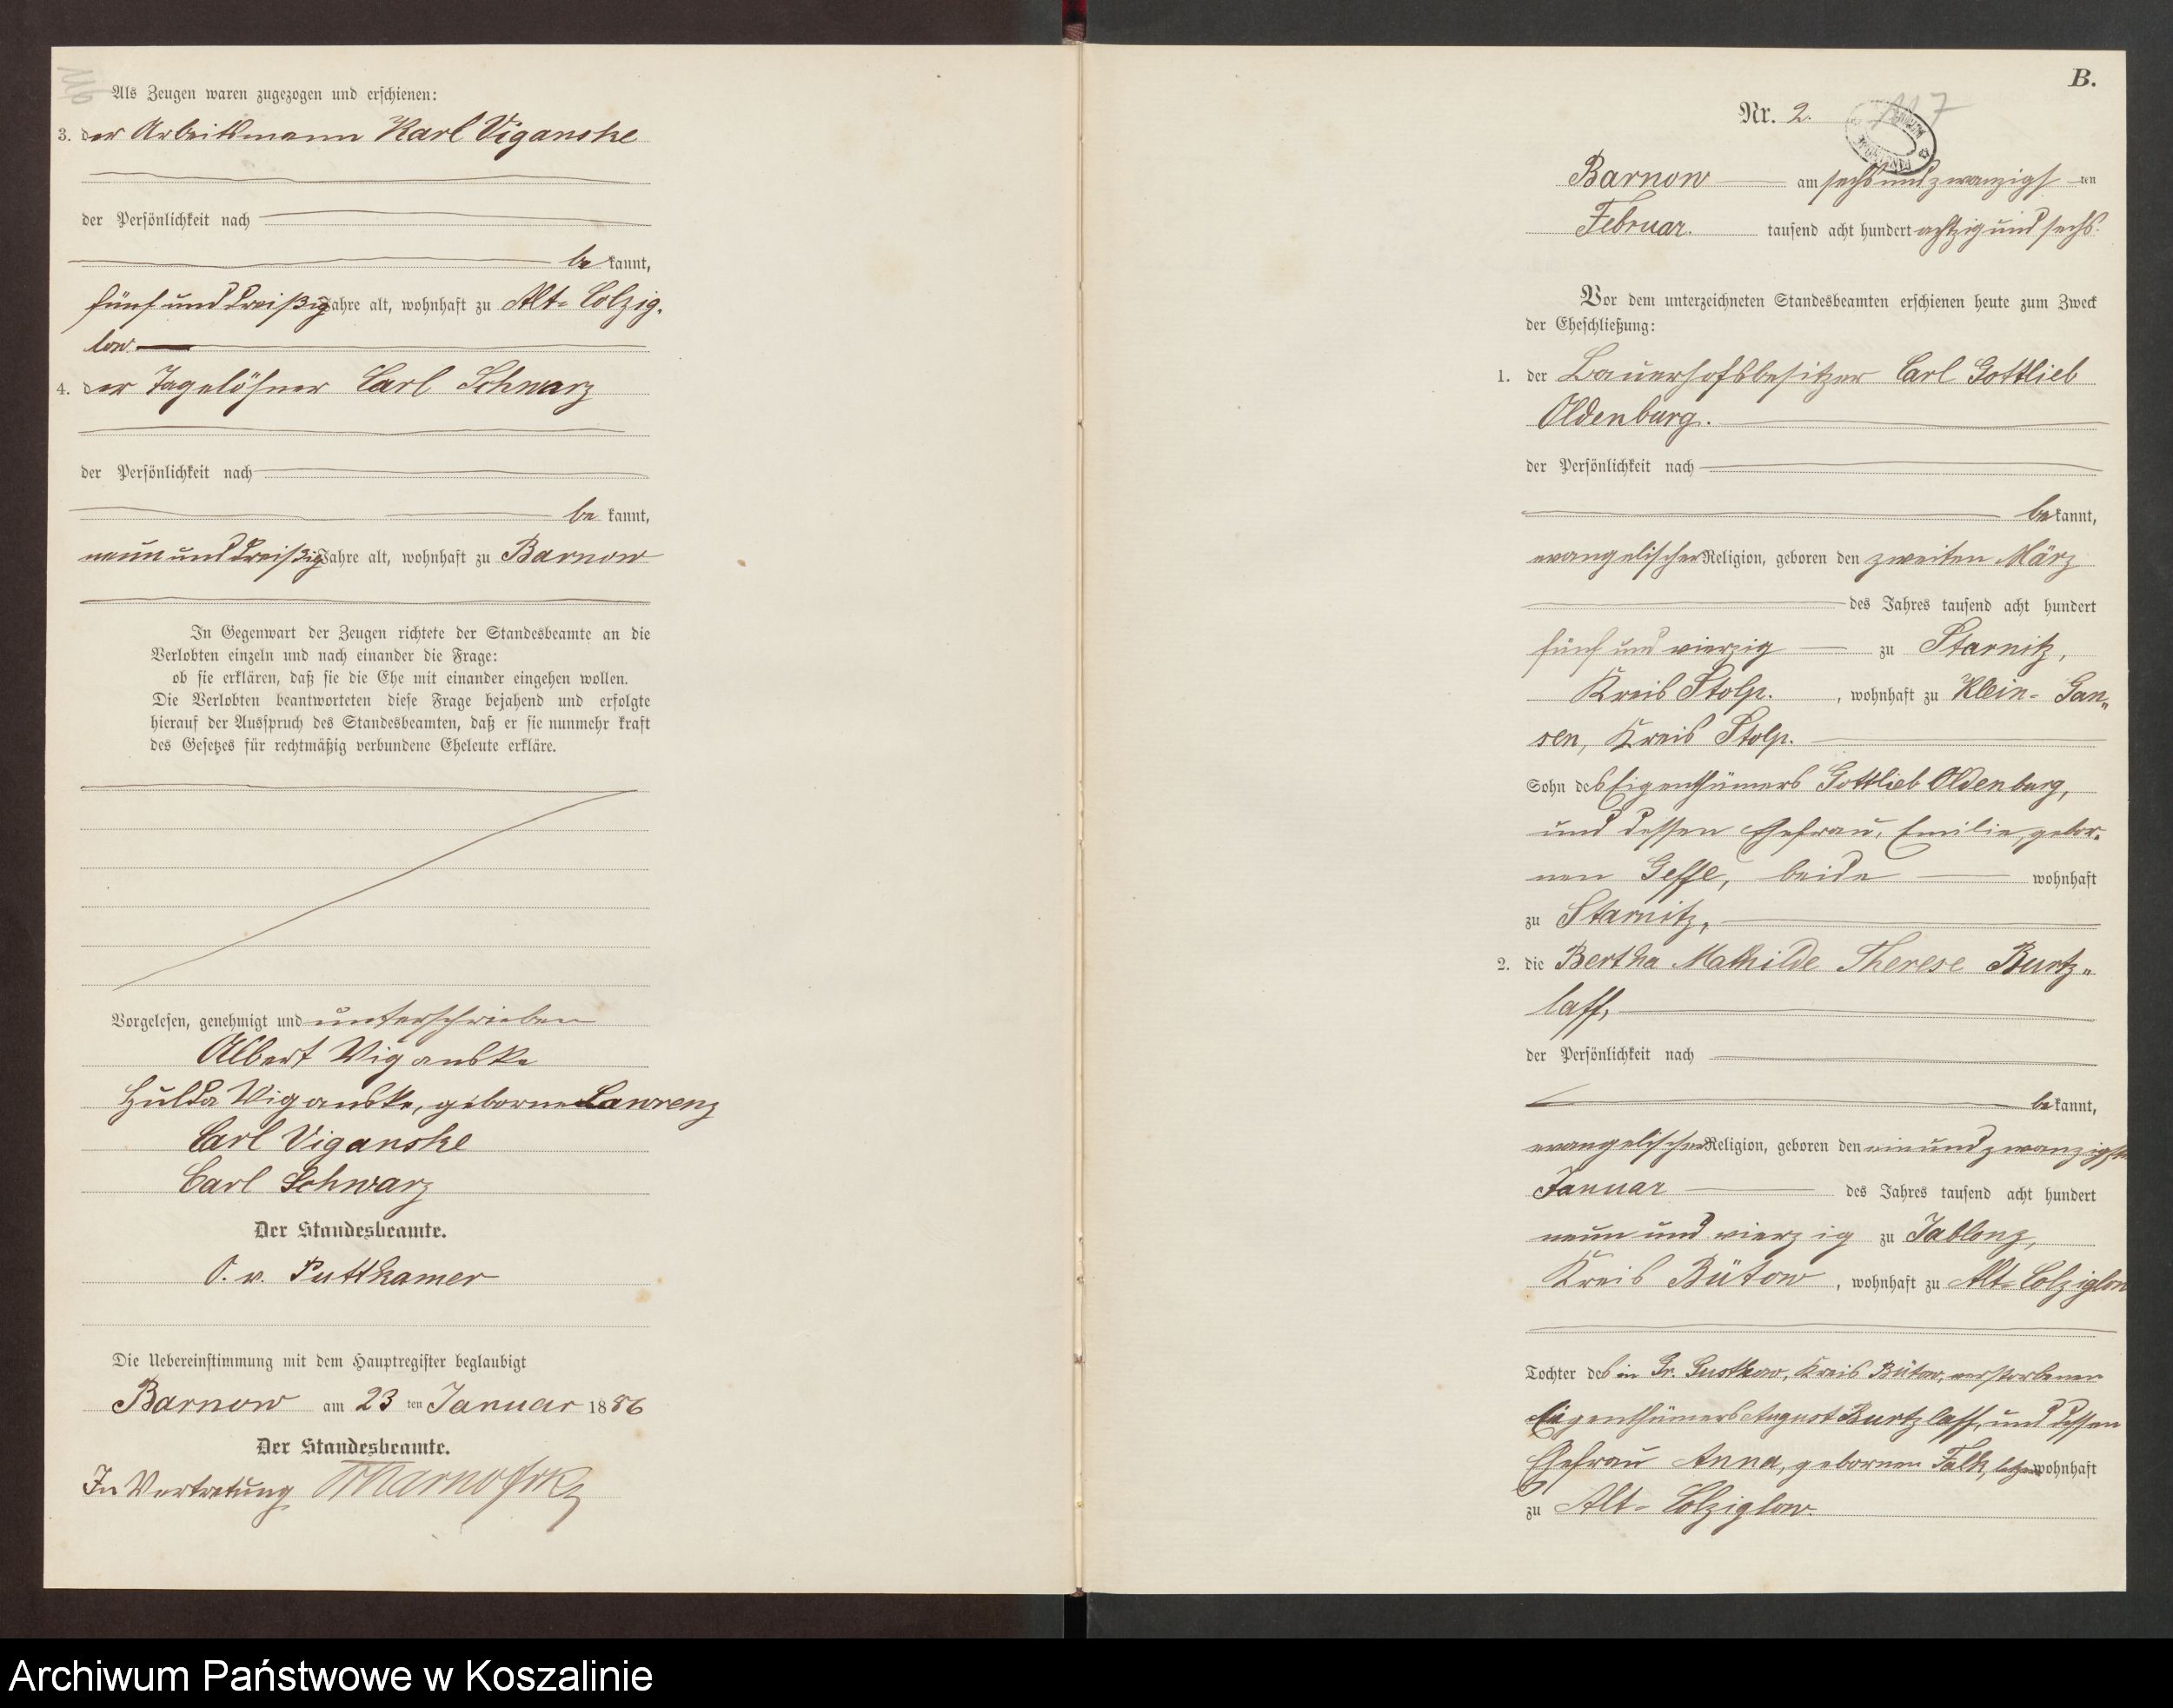 116
Als Zeugen waren zugezogen und erschienen:
3. der Arbeitsmann Karl Viganske
der Persönlichkeit nach
be kannt,
fünf und dreißig Jahre alt, wohnhaft zu Alt-Colzig-
low
4. der Tagelöhner Carl Schwarz
der Persönlichkeit nach
be kannt,
neun und dreißig Jahre alt, wohnhaft zu Barnow
In Gegenwart der Zeugen richtete der Standesbeamte an die
Verlobten einzeln und nach einander die Frage:
ob sie erklären, daß sie die Ehe mit einander eingehen wollen.
Die Verlobten beantworteten diese Frage bejahend und erfolgte
hierauf der Ausspruch des Standesbeamten, daß er sie nunmehr kraft
des Gesetzes für rechtmäßig verbundene Eheleute erkläre.
Vorgelesen, genehmigt und unterschrieben
Albert Viganske
Hulda Viganske, geborne Lawrenz
Carl Viganske
Carl Schwarz
Der Standesbeamte.
O. v. Puttkamer
Die Uebereinstimmung mit dem Hauptregister beglaubigt
Barnow am 23 ten Januar 1886
Der Standesbeamte.
In Vertretung
B.
Nr. 2. 117
Barnow am sechs und zwanzigs ten
Februar. tausend acht hundert achtzig und sechs.
Vor dem unterzeichneten Standesbeamten erschienen heute zum Zweck
der Eheschließung:
1. der Bauerhofsbesitzer Carl Gottlieb
Oldenburg.
der Persönlichkeit nach
be kannt,
evangelischer Religion, geboren den zweiten März
des Jahres tausend acht hundert
fünf und vierzig zu Starnitz,
Kreis Stolp. , wohnhaft zu Klein-Gan-
sen, Kreis Stolp.
Sohn des Eigenthümers Gottlieb Oldenburg,
und dessen Ehefrau, Emilie, gebor-
nen Geffe, beide wohnhaft
zu Starnitz,
2. die Bertha Mathilde Therese Kurtz-
laff,
der Persönlichkeit nach
be kannt,
evangelischer Religion, geboren den ein und zwanzigsten
Januar des Jahres tausend acht hundert
neun und vierzig zu Jablonz,
Kreis Bütow , wohnhaft zu Alt-Colziglow
Tochter des in Gr. Gustkow, Kreis Bütow, verstorbenen
Eigenthümers August Kurtzlaff, und dessen
Ehefrau Anna, gebornen Falk, wohnhaft
zu Alt-Colziglow.
Archiwum Państwowe w Koszalinie